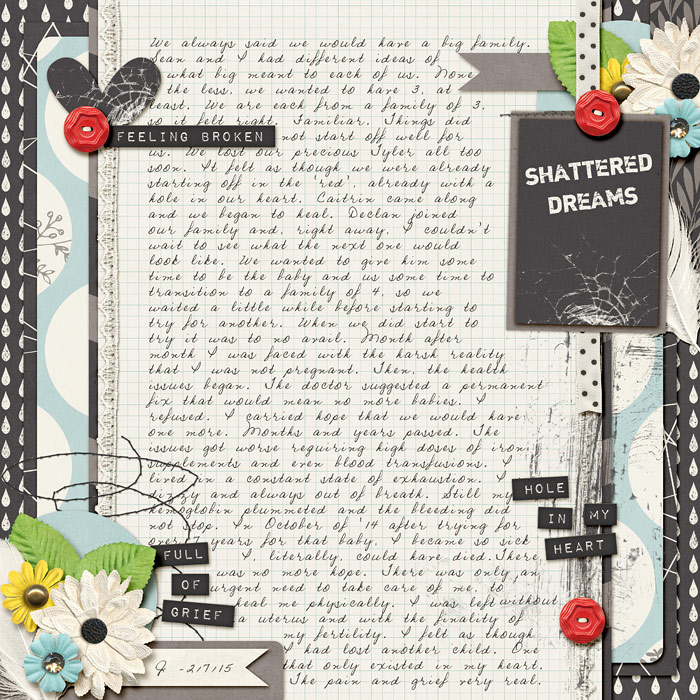 We always said we would have a big family.
Sean and I had different ideas of
what big meant to each of us. None
the less, we wanted to have 3, at
least. We are each from a family of 3,
so it felt right. Familiar. Things did
not start off well for
us. We lost our precious Tyler all too
soon. It felt as though we were already
starting off in the 'red', already with a
hole in our heart. Caitrin came along
and we began to heal. Declan joined
our family and, right away, I couldn't
wait to see what the next one would
look like. We wanted to give him some
time to be the baby and us some time to
transition to a family of 4, so we
waited a little while before starting to
try for another. When we did start to
try it was to no avail. Month after
month I was faced with the harsh reality
that I was not pregnant. Then, the health
issues began. The doctor suggested a permanent
fix that would mean no more babies. I
refused. I carried hope that we would have
one more. Months and years passed. The
issues got worse requiring high doses of iron
supplements and even blood transfusions. I
lived in a constant state of exhaustion. I
dizzy and always out of breath. Still my
hemoglobin plummeted and the bleeding did
not stop. In October of '14 after trying for
over 7 years for that baby, I became so sick
I, literally, could have died. There
was no more hope. There was only an
urgent need to take care of me, to
heal me physically. I was left without
a uterus and with the finality of
my fertility. I felt as though
I had lost another child. One
that only existed in my heart.
The pain and grief very real.
FEELING BROKEN
SHATTERED
DREAMS
HOLE
IN MY
HEART
FULL
OF
GRIEF
-2/7/15